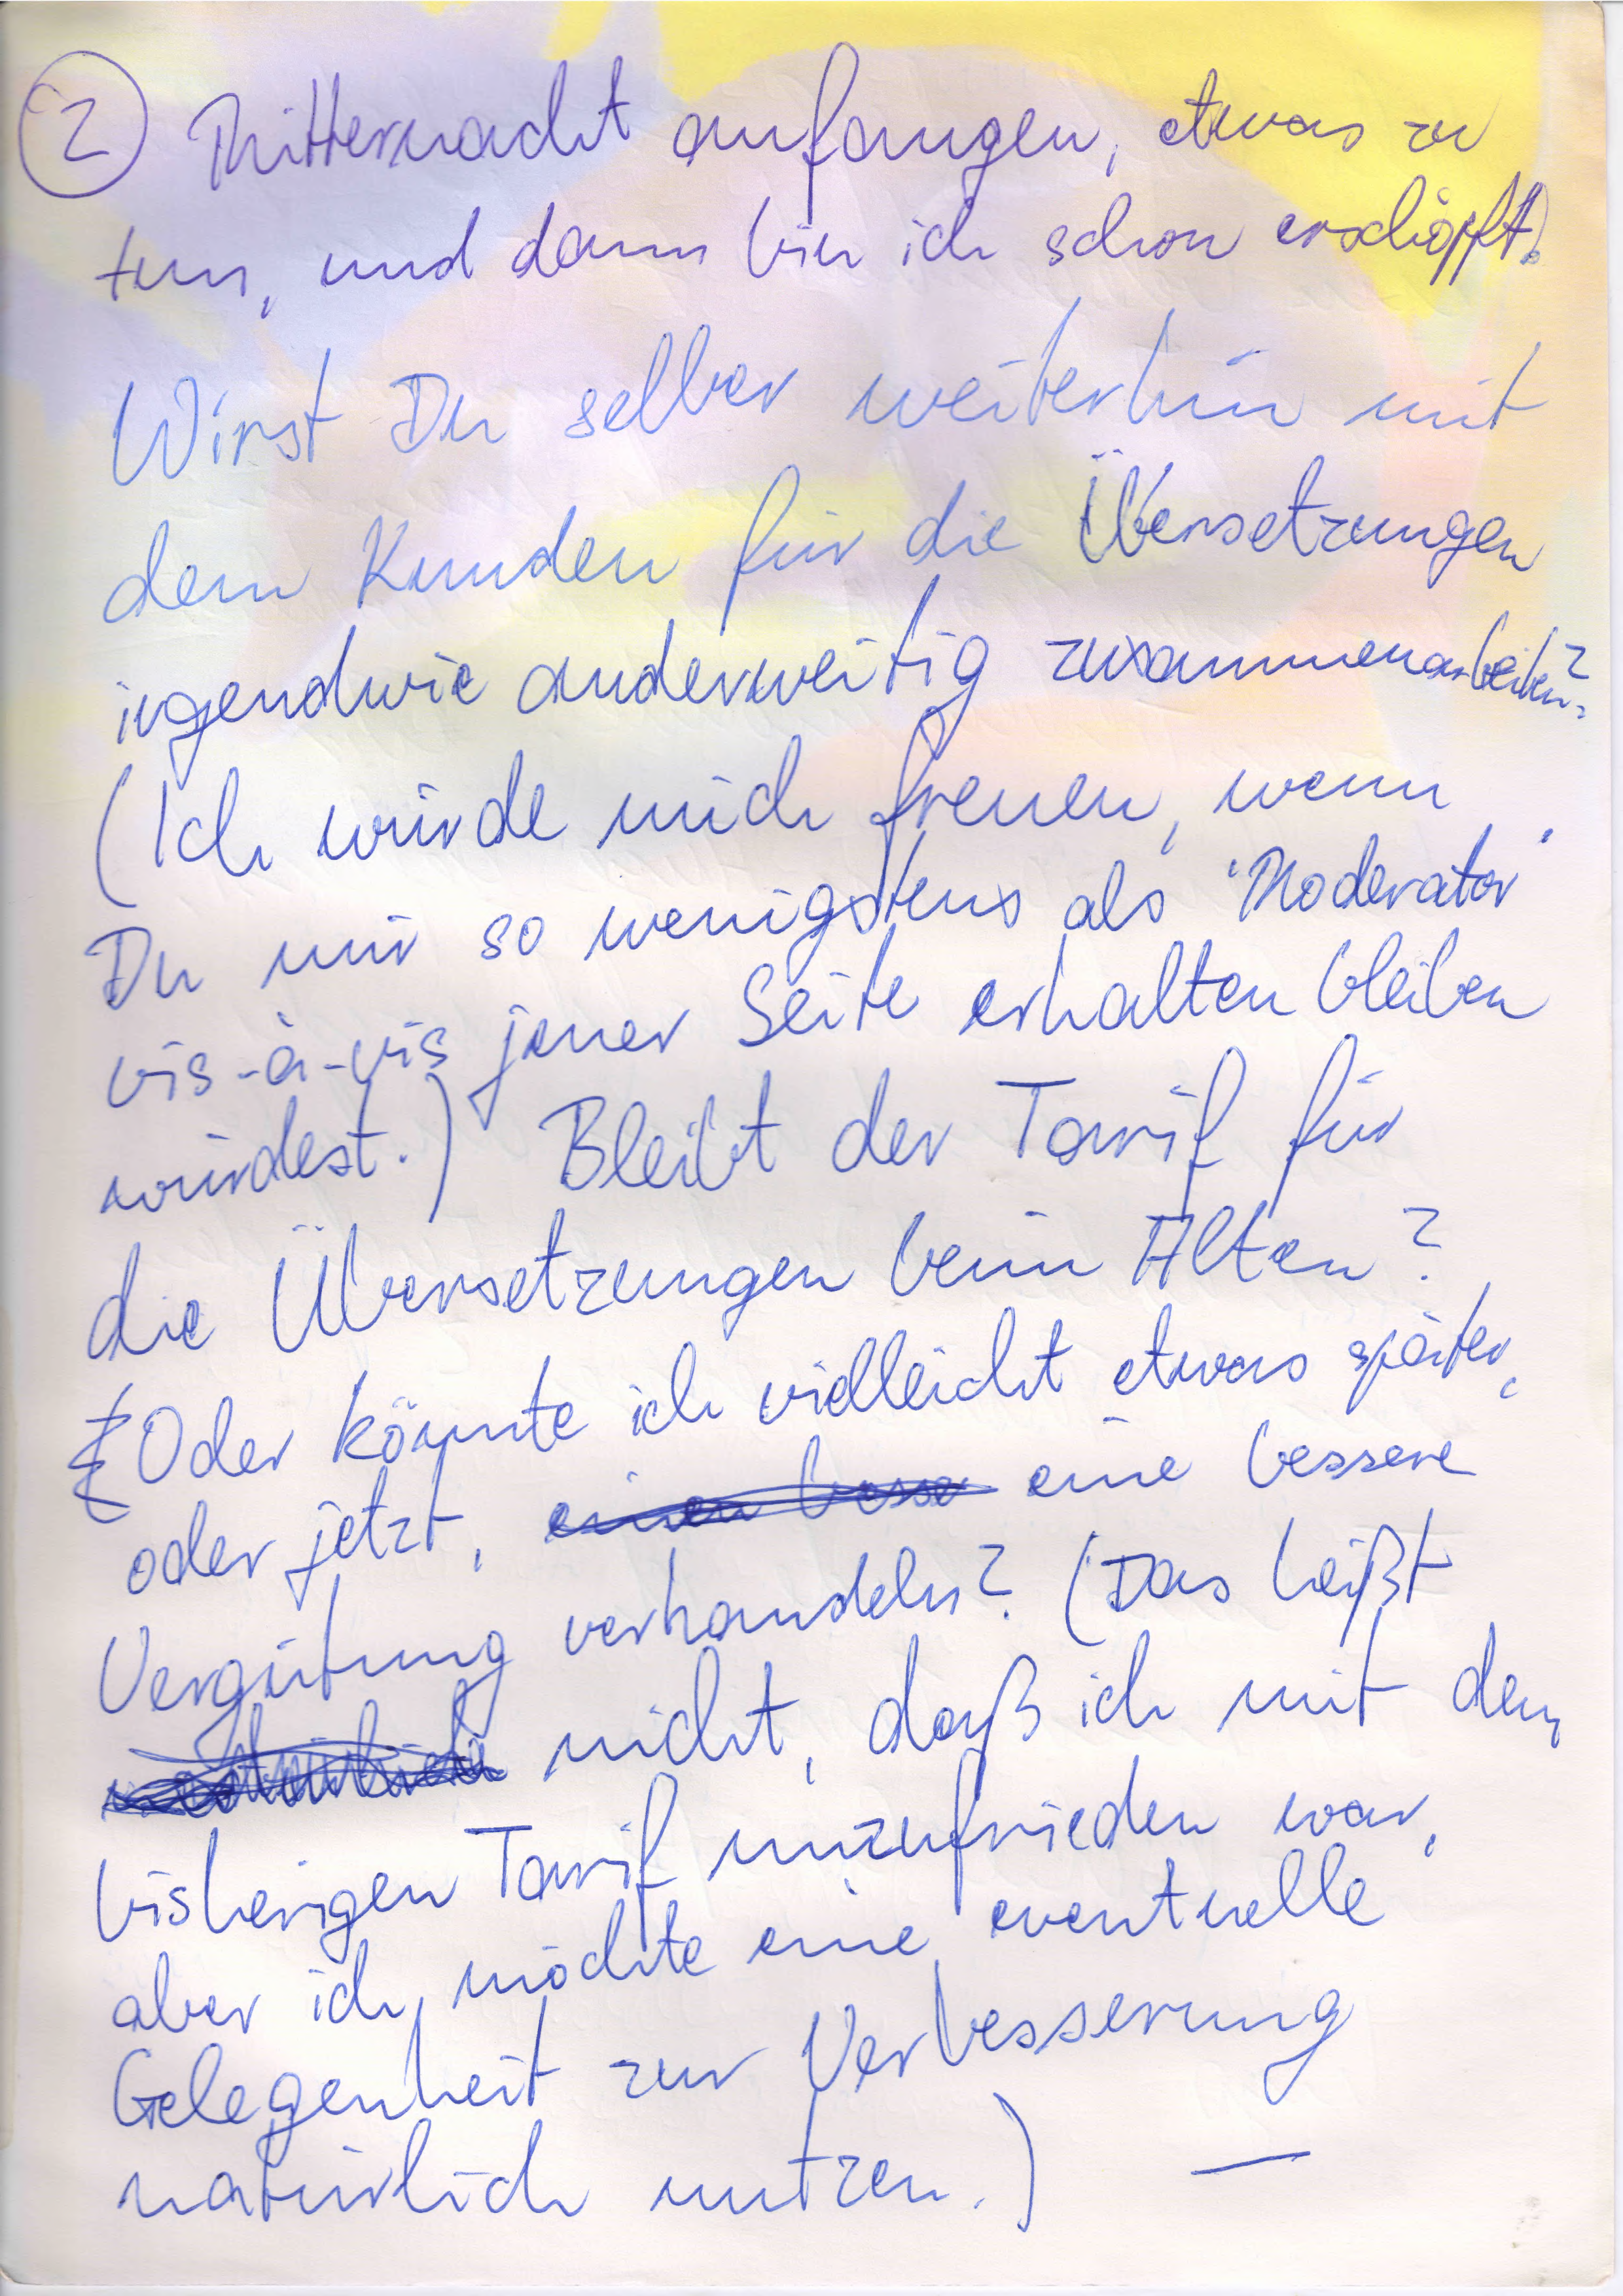 ② Mitternacht anfangen, etwas zu
tun, und dann bin ich schon erschöpft!)
Wirst Du selber weiterhin mit
dem Kunden für die Übersetzungen
irgendwie anderweitig zusammenarbeiten?
(Ich würde mich freuen, wenn
Du mir so wenigstens als 'Moderator'
vis-à-vis jener Seite erhalten bleiben
würdest.) Bleibt der Tarif für
die Übersetzungen beim Alten?
Oder könnte ich vielleicht etwas später,
oder jetzt, einen besse eine bessere
Vergütung verhandeln? (Das heißt
nicht, daß ich mit dem
bisherigen Tarif unzufrieden war,
aber ich möchte eine eventuelle
Gelegenheit zur Verbesserung
natürlich nutzen.) —